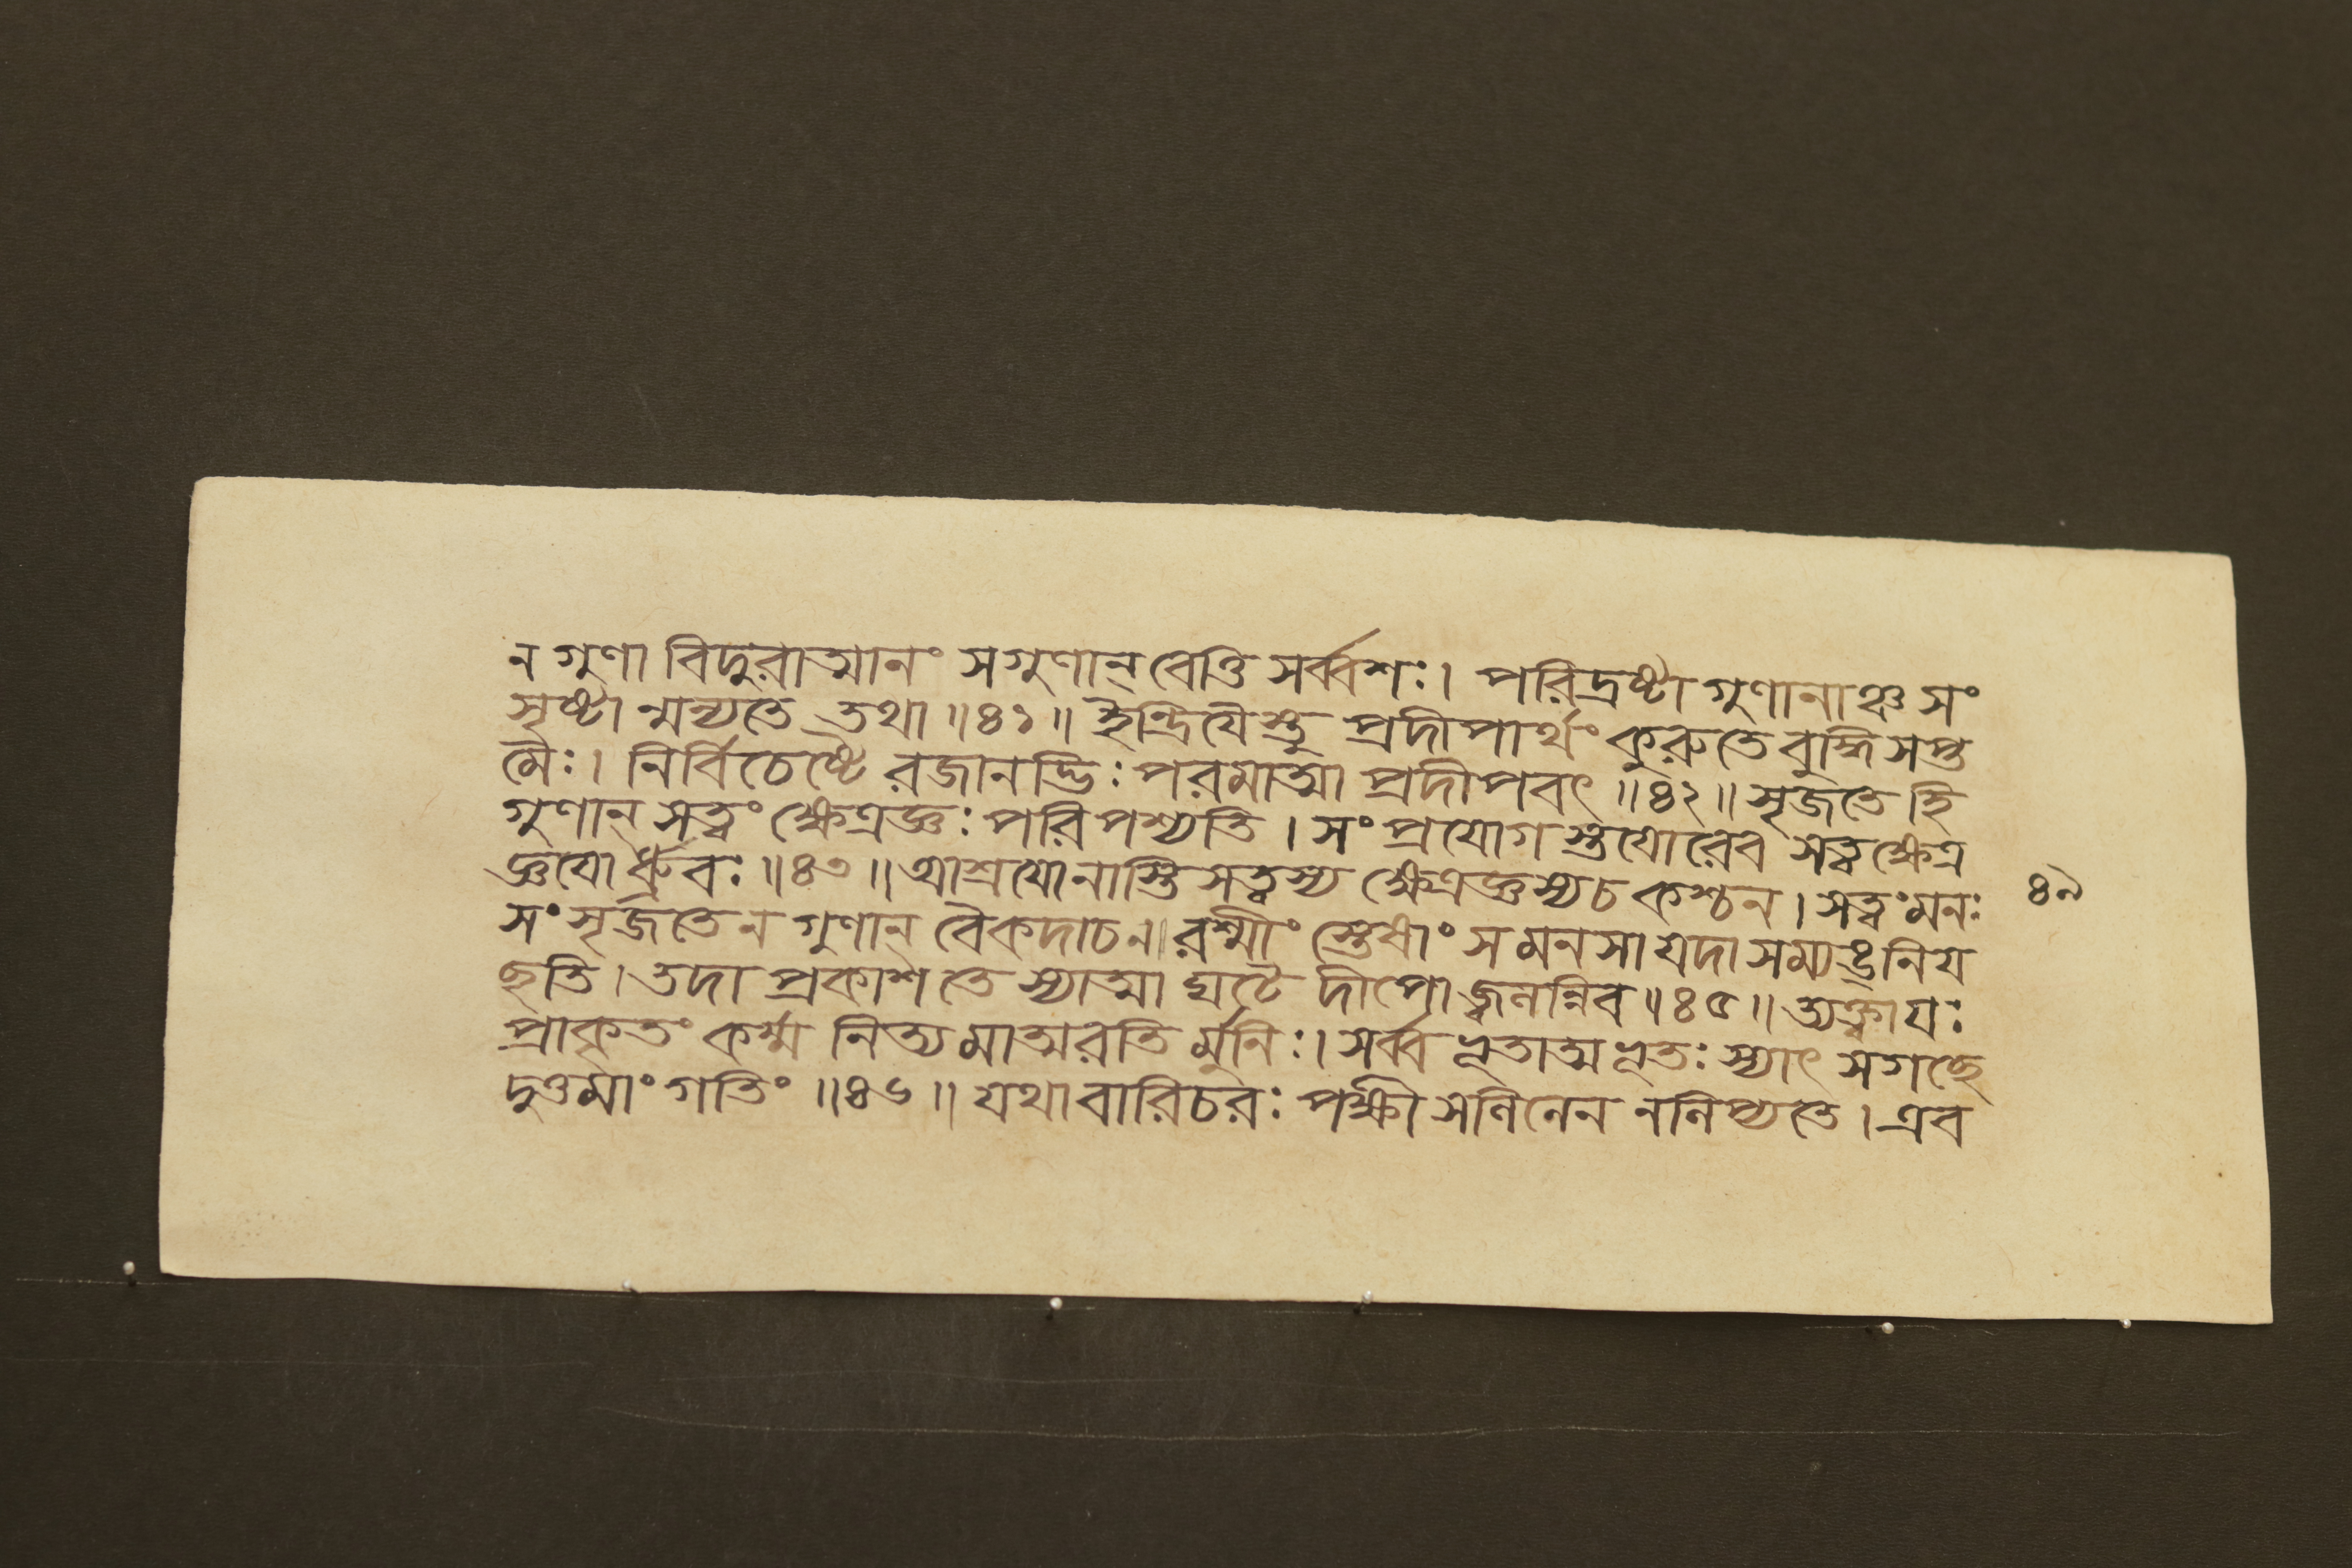 ন গুণা বিদুরাত্মানং সগুণান্ বেত্তি সর্ব্বশঃ। পরিদ্রষ্টা গুণানাঞ্চ সং
সৃষ্টান্মন্যতে তথা ॥৪১॥ ইন্দ্রিযৈস্তু প্রদীপার্থং কুরুতে বুদ্ধিসপ্ত
মৈঃ। নির্বিচেষ্টৈরজানদ্ভিঃ পরমাত্মা প্রদীপবৎ ॥৪২॥ সৃজতে হি
গুণান্ সত্বং ক্ষেত্রজ্ঞঃ পরিপশ্যতি। সংপ্রযোগস্তযোরেব সত্বক্ষেত্র
জ্ঞযোর্ধ্রুবঃ ॥৪৩॥ আশ্রযোনাস্তি সত্বস্য ক্ষেত্রজ্ঞস্যচ কশ্চন। সত্বং মনঃ
৪৯
সংসৃজতে ন গুণান্ বৈকদাচন॥ রশ্মীংস্তেষাং স মনসা যদা সম্যঙ্নিয
ছতি। তদা প্রকাশতেস্যাত্মা ঘটে দীপো জ্বলন্নিব ॥৪৫॥ ত্যক্ত্বা যঃ
প্রাকৃতং কর্ম্ম নিত্যমাত্মরতির্মুনিঃ। সর্ব্বভূতাত্মভূতঃ স্যাৎ সগচ্ছে
দুত্তমাং গতিং ॥৪৬॥ যথা বারিচরঃ পক্ষী সলিলেন নলিপ্যতে। এব